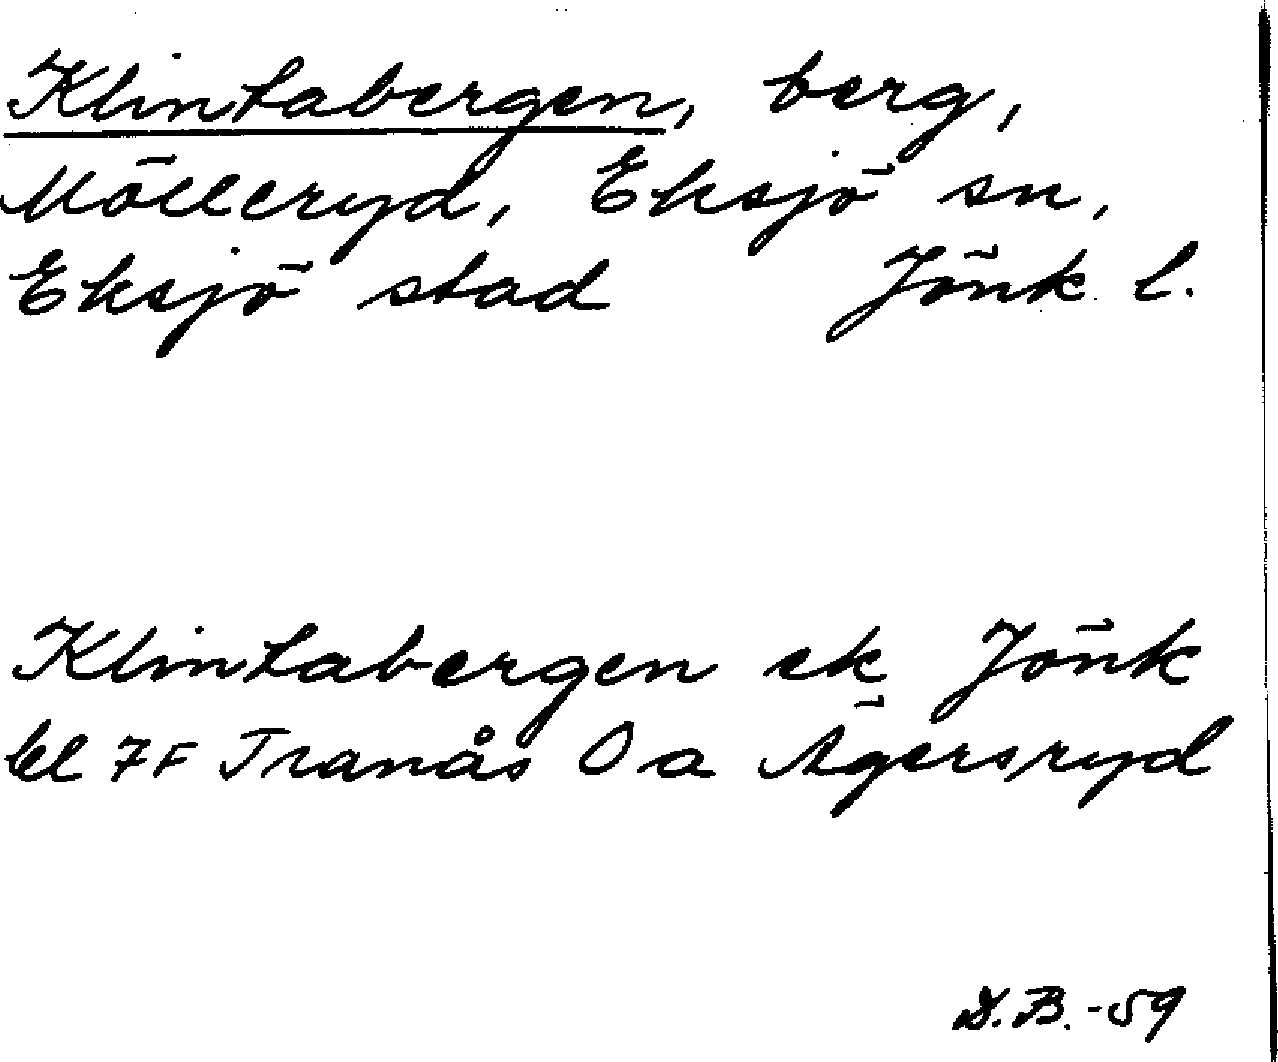 Klintabergen, berg,
Mölleryd, Eksjö sn,
Eksjö stad Jönk. l.
Klintabergen ek Jönk
bl 7F Tranås 0 a Ägersryd
D.B.-59